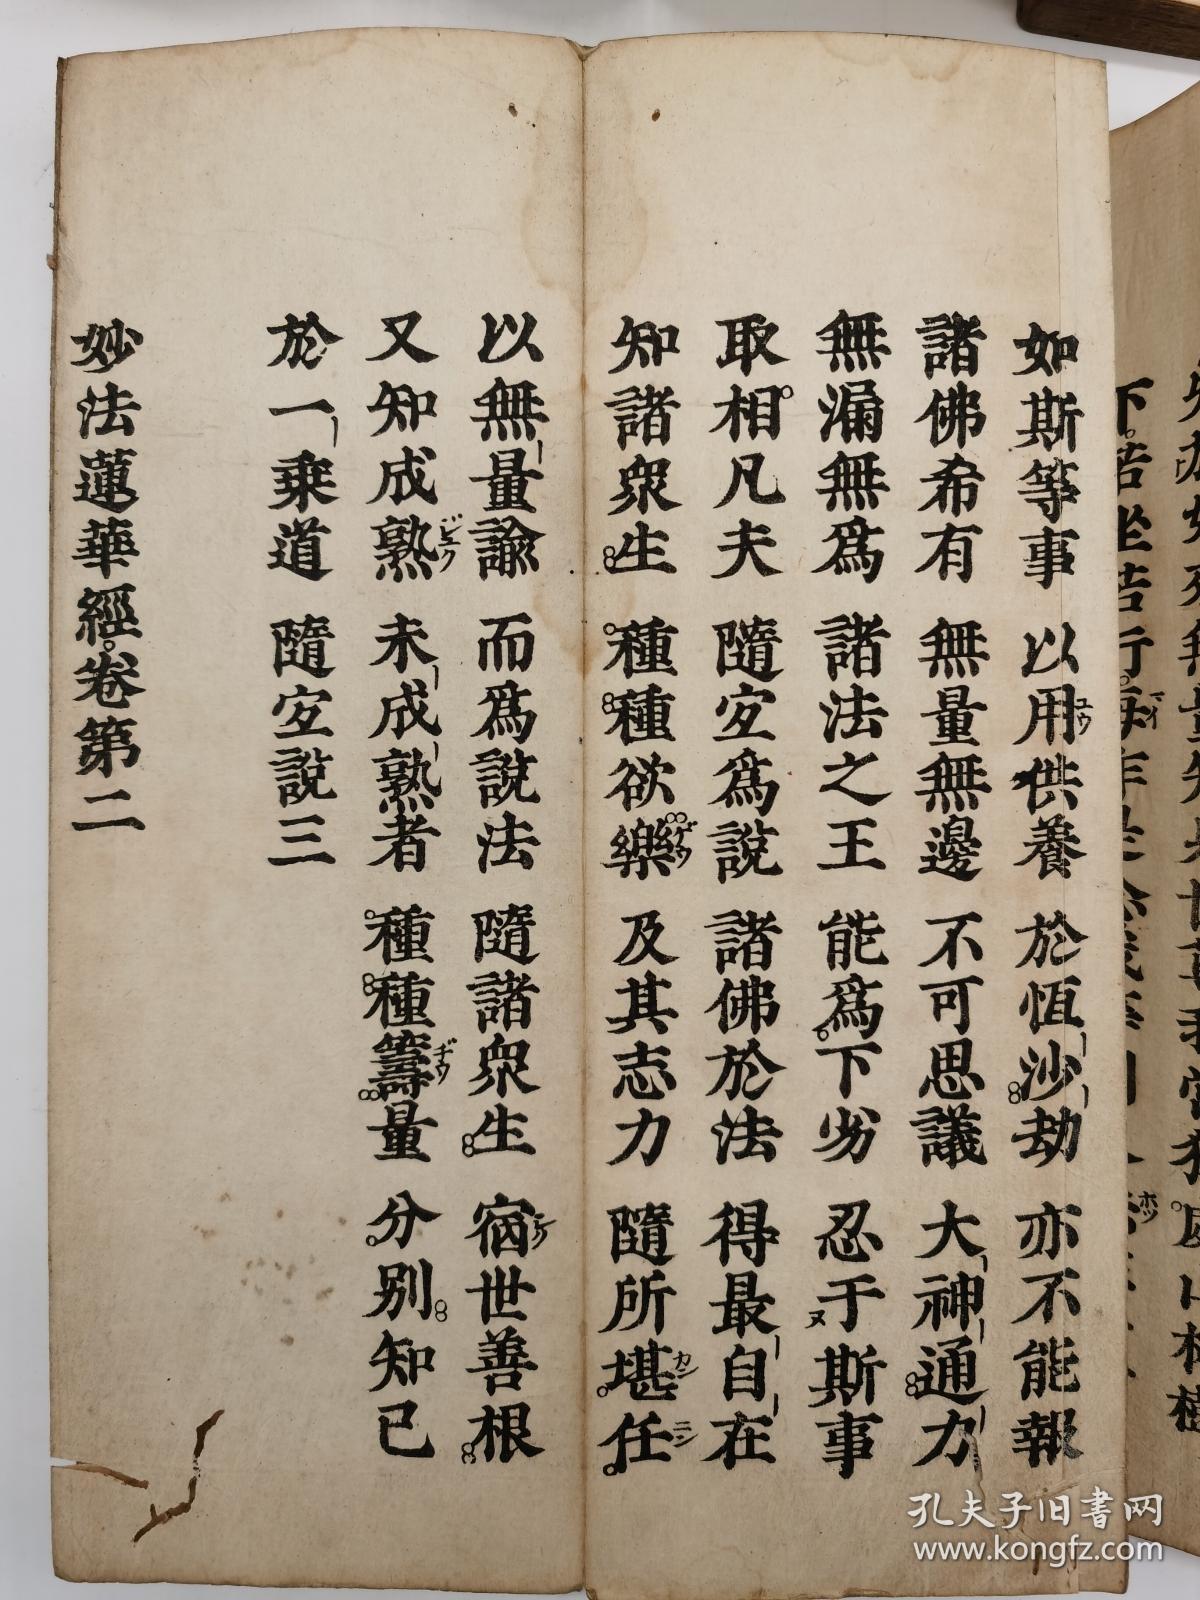 如斯等事 以用供養 於恆沙劫 亦不能報
諸佛希有 無量無邊 不可思議 大神通力
無漏無爲 諸法之王 能爲下劣 忍于斯事
取相凡夫 隨宜爲說 諸佛於法 得最自在
知諸衆生 種種欲樂 及其志力 隨所堪任
以無量諭 而爲說法 隨諸衆生 宿世善根
又知成熟 未成熟者 種種籌量 分別知已
於一乘道 隨宜說三
妙法蓮華經卷第二
孔夫子旧书网
www.kongfz.com